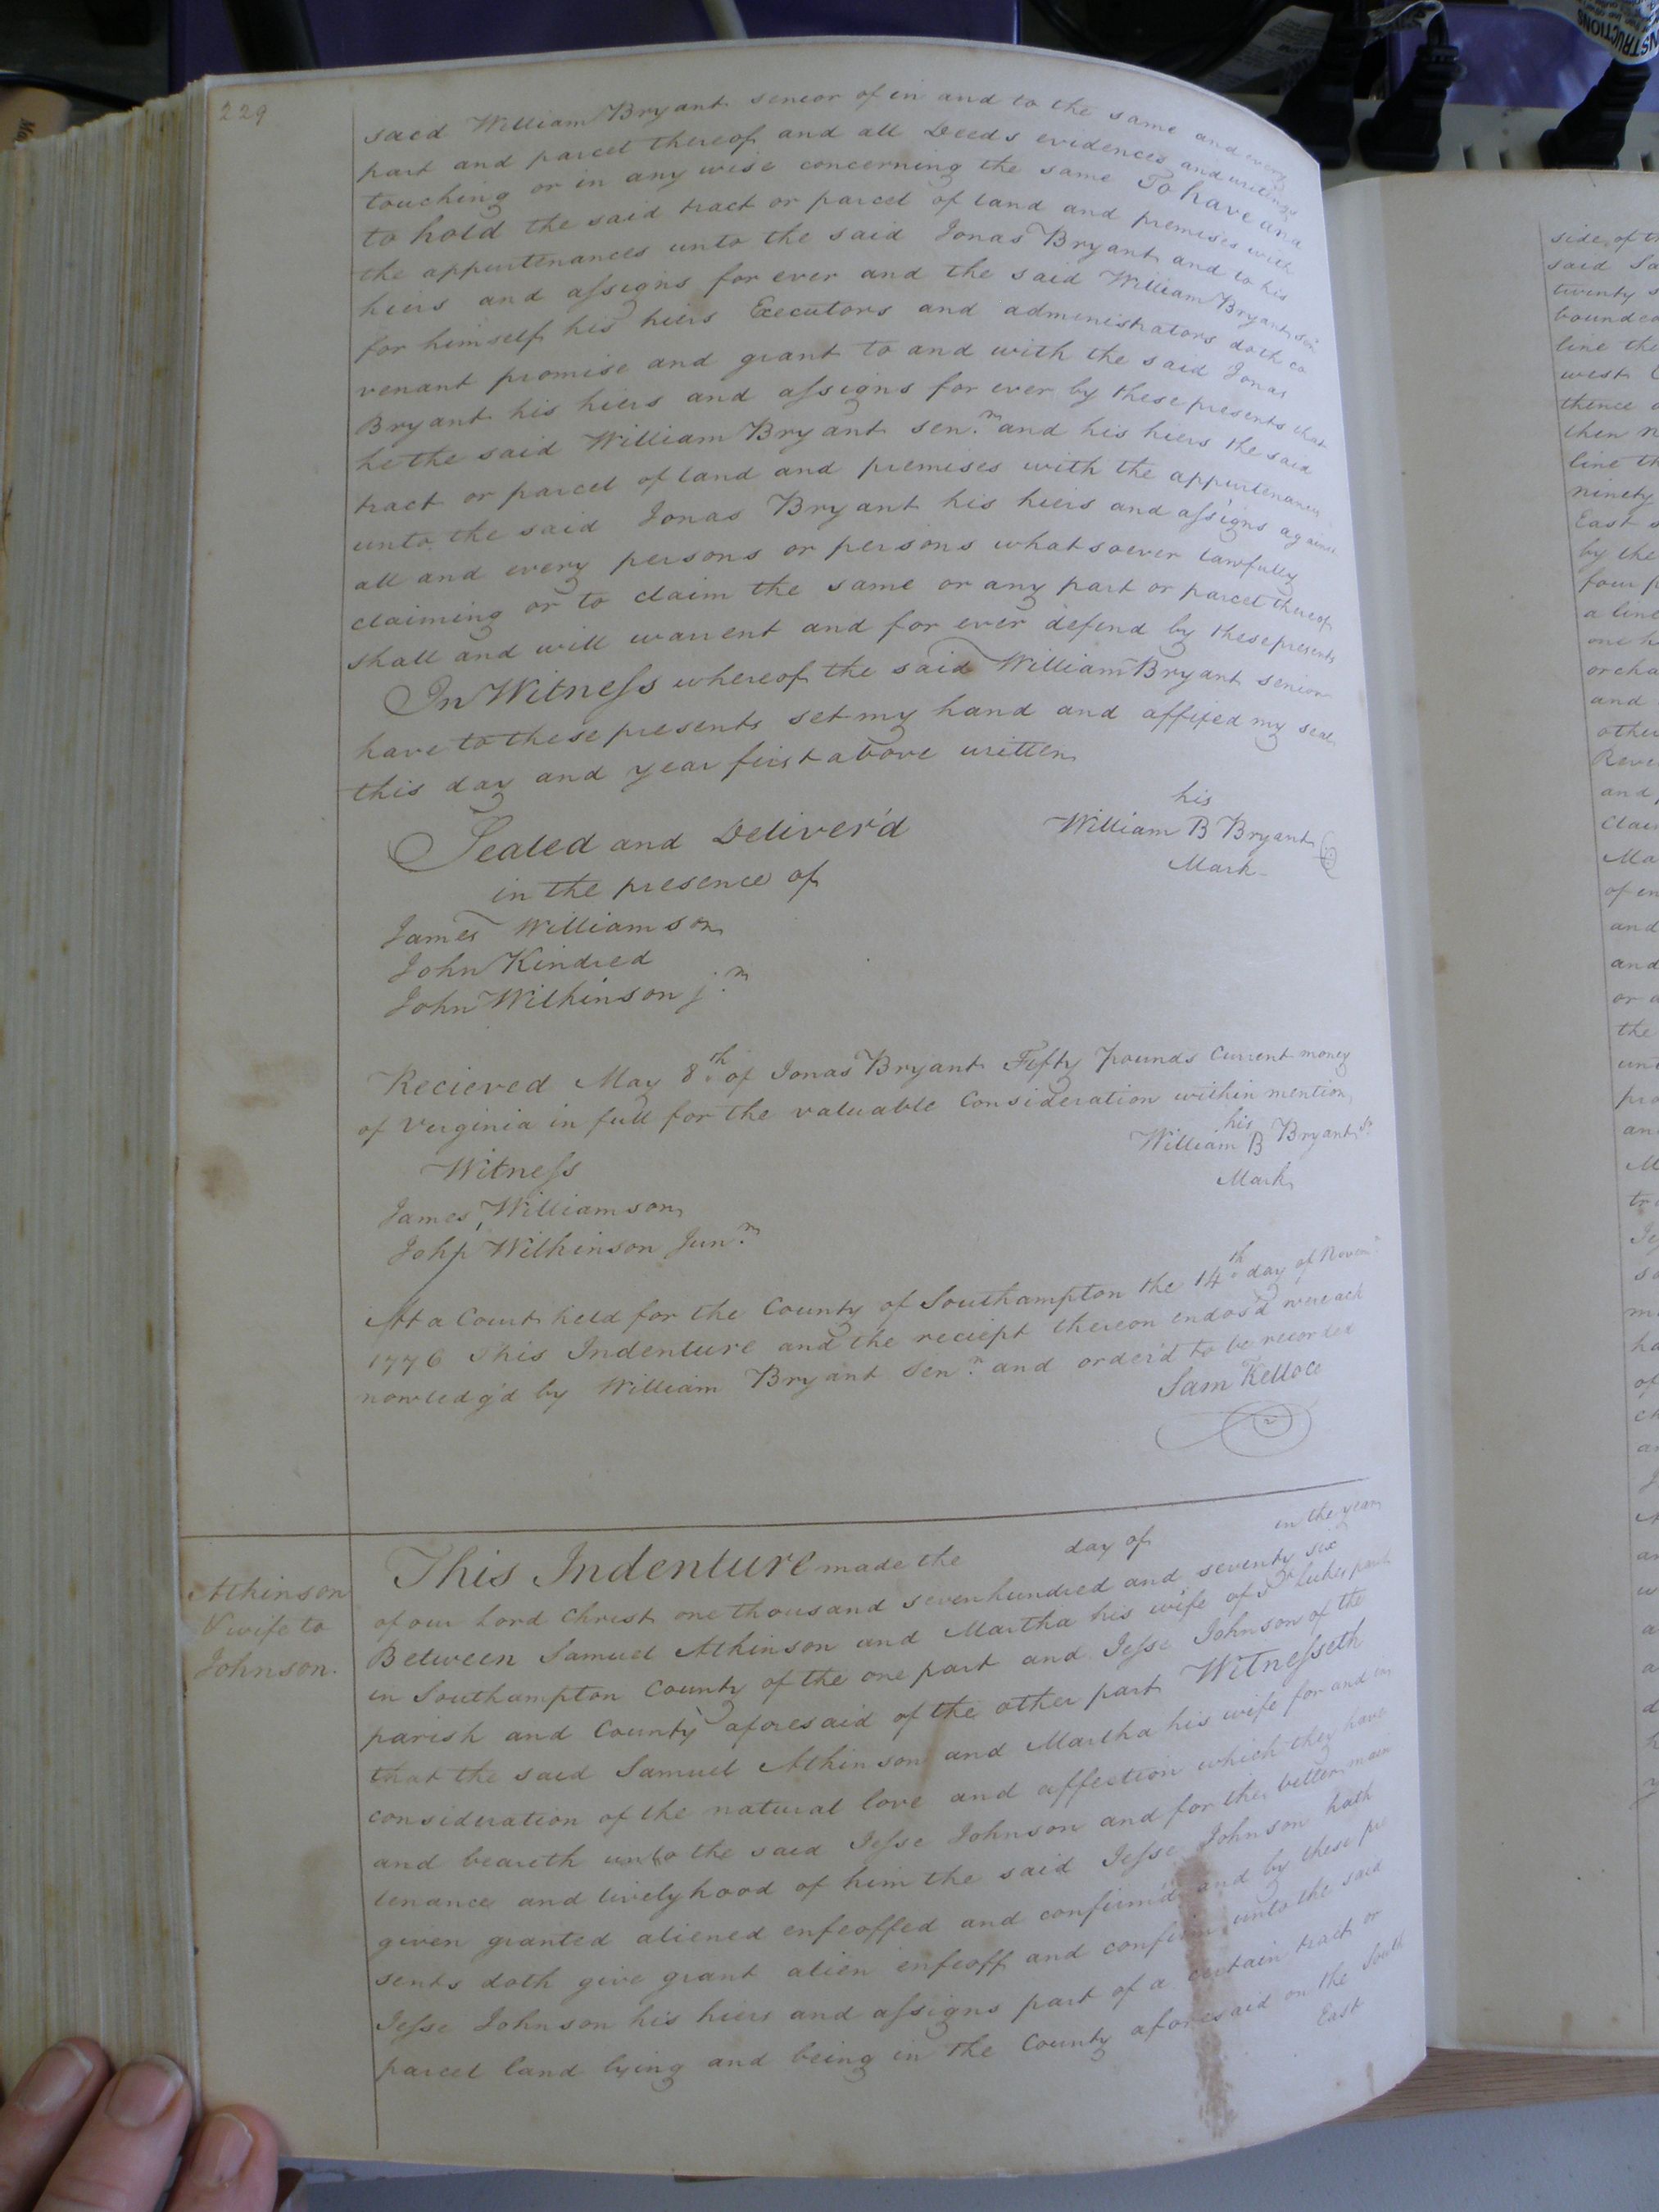 229
said William Bryant senior of in and to the same and every
part and parcel thereof and all Deeds evidences and writings
touching or in any wise concerning the same To have and
to hold the said tract or parcel of land and premises with
the appurtenances unto the said Jonas Bryant and to his
heirs and assigns for ever and the said William Bryant senr
for himself his heirs Executors and administrators doth co
venant promise and grant to and with the said Jonas
Bryant his heirs and assigns for ever by these presents that
he the said William Bryant Senr. and his heirs the said
tract or parcel of land and premises with the appurtenances
unto the said Jonas Bryant his heirs and assigns against
all and every persons or persons whatsoever lawfully
claiming or to claim the same or any part or parcel thereof
shall and will warrent and for ever defend by these presents
In Witness whereof the said William Bryant senior
have to these presents set my hand and affixed my seal
this day and year first above written
his
Sealed and Deliver'd William B Bryant
in the presence of Mark
James Williamson
John Kindred
John Wilkinson jr.
Recieved May 8th of Jonas Bryant Fifty pounds Current money
of Verginia in full for the valuable Consideration within mention
his
William B Bryant Sr.
Witness Mark
James Williamson
John Wilkinson Junr.
At a Court held for the County of Southampton the 14th day of Novemr.
1776 This Indenture and the reciept thereon endos'd were ack
nowledg'd by William Bryant Senr. and order'd to be recorded
Sam Kelloce
Atkinson
& wife to
Johnson.
This Indenture made the day of in the year
of our Lord Christ one thousand seven hundred and seventy six
Between Samuel Atkinson and Martha his wife of St Lukes parish
in Southampton County of the one part and Jesse Johnson of the
parish and County aforesaid of the other part Witnesseth
that the said Samuel Atkinson and Martha his wife for and in
consideration of the natural love and affection which they have
and beareth unto the said Jesse Johnson and for the better main
tenance and livelyhood of him the said Jesse Johnson hath
given granted aliened enfeoffed and confirm'd and by these pre
sents doth give grant alien enfeoff and confirm unto the said
Jesse Johnson his heirs and assigns part of a certain tract or
parcel land lying and being in the County aforesaid on the South
East
side of th
said Sa
twenty s
bounded
line the
west
thence
then n
line th
ninety
East s
by the
four p
a line
one h
orcha
and
other
Reve
and
Clai
Ma
of in
and
and
or a
the
unt
pro
an